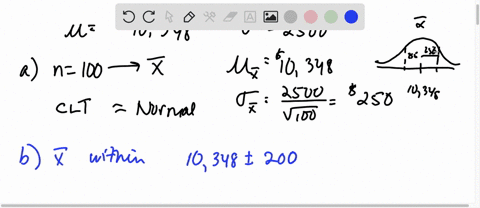 μ = 10,348 σ = 2500
a) n=100 → x̄ μx̄ = $10,348
CLT ≈ Normal σx̄ = 2500/√100 = $250
x̄
10,348
b) x̄ within 10,348 ± 200